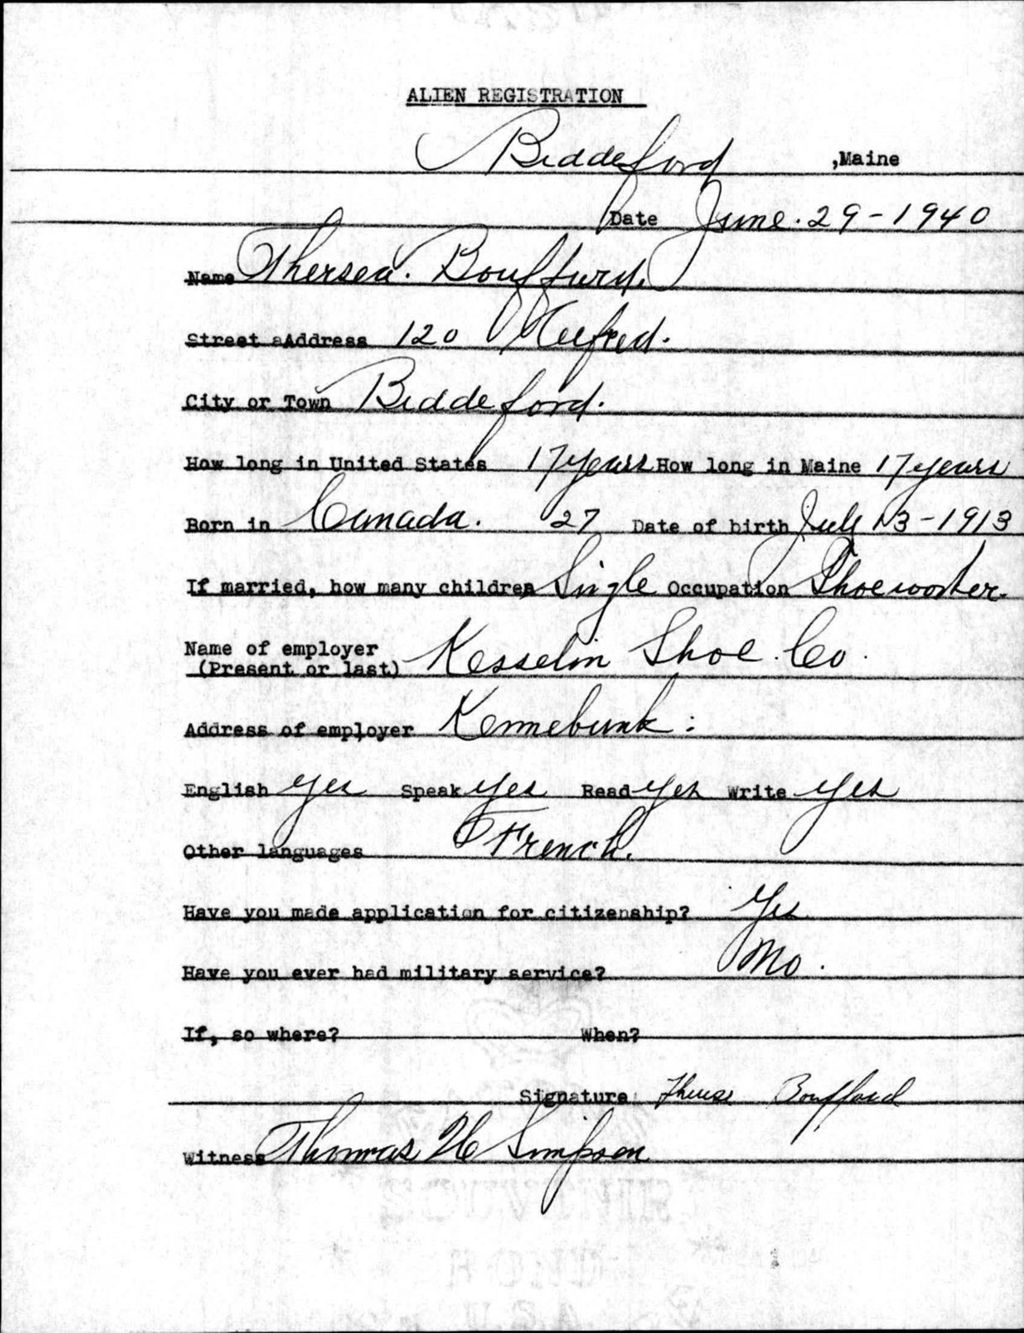 ALIEN REGISTRATION
Biddeford, Maine
Date June. 29-1940
Name Thersea. Bouffurd.
Street aAddress 120
City or Town Biddeford.
How long in United States 17 years How long in Maine 17 years
Born in Canada. 27 Date of birth July 13-1913
If married, how many children Single Occupation Shoe worker.
Name of employer
(Present or last) Kesslen Shoe. Co.
Address of employer Kennebunk:
English yes Speak yes Read yes Write yes
Other languages French.
Have you made application for citizenship? Yes
Have you ever had military service? No.
If, so where? When?
Signature Therese Bouffard
Witness Thomas H Simpson